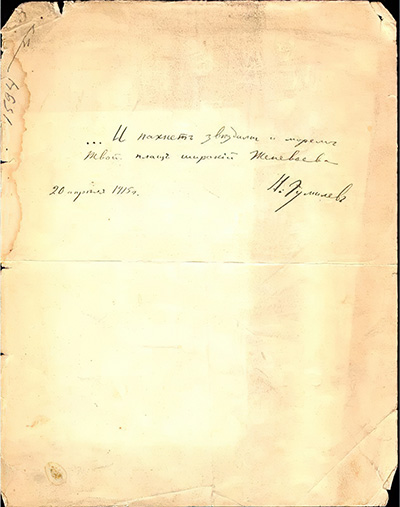 1594
... И пахнетъ звѣздами и моремъ
Твой плащъ широкій Женевьева
20 апрѣля 1915 г. Н. Гумилевъ